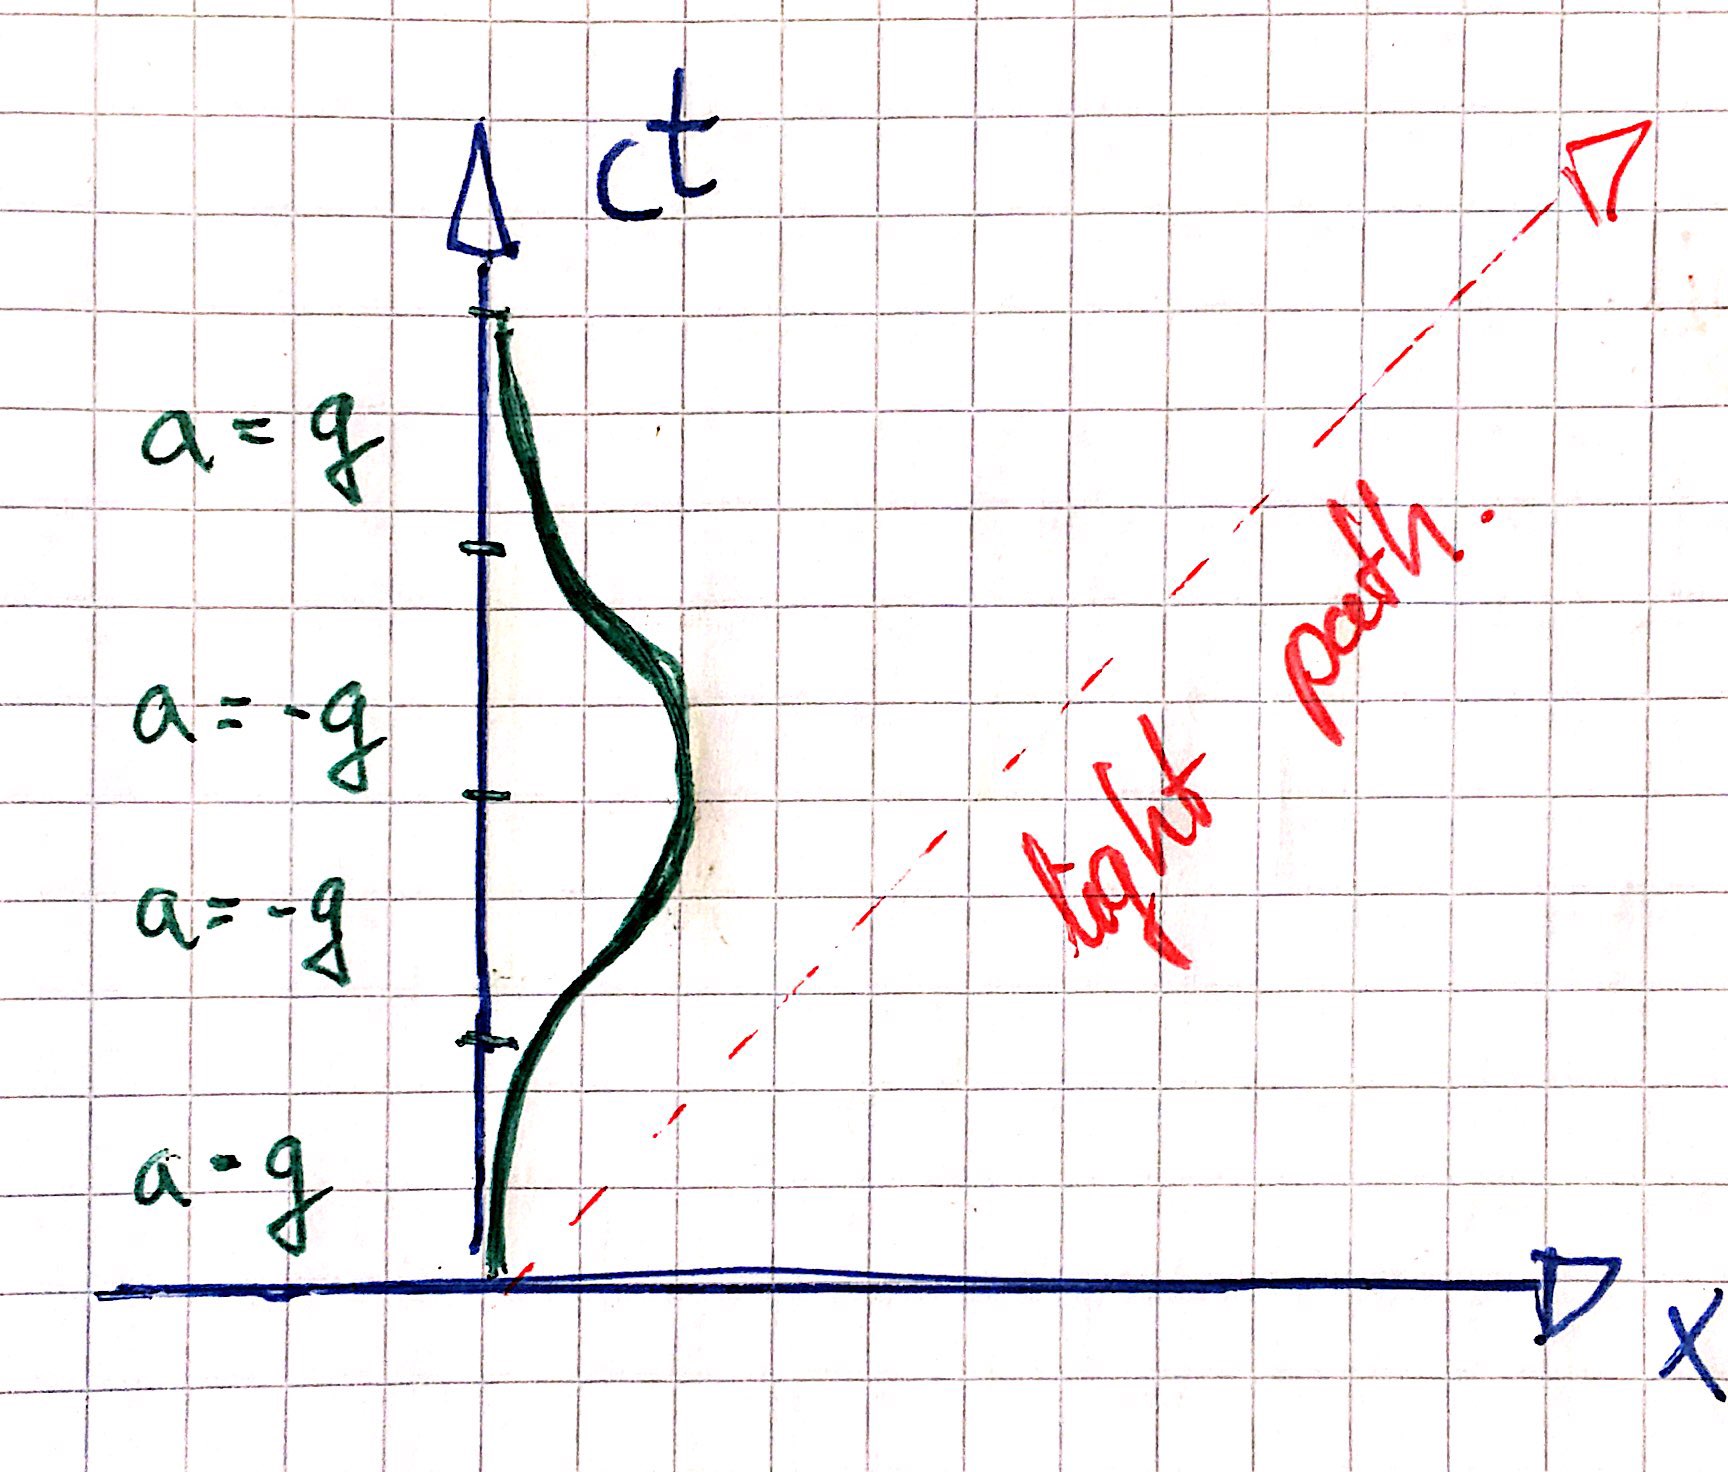 ct
a = g
a = -g
a = -g
a = g
light path.
x